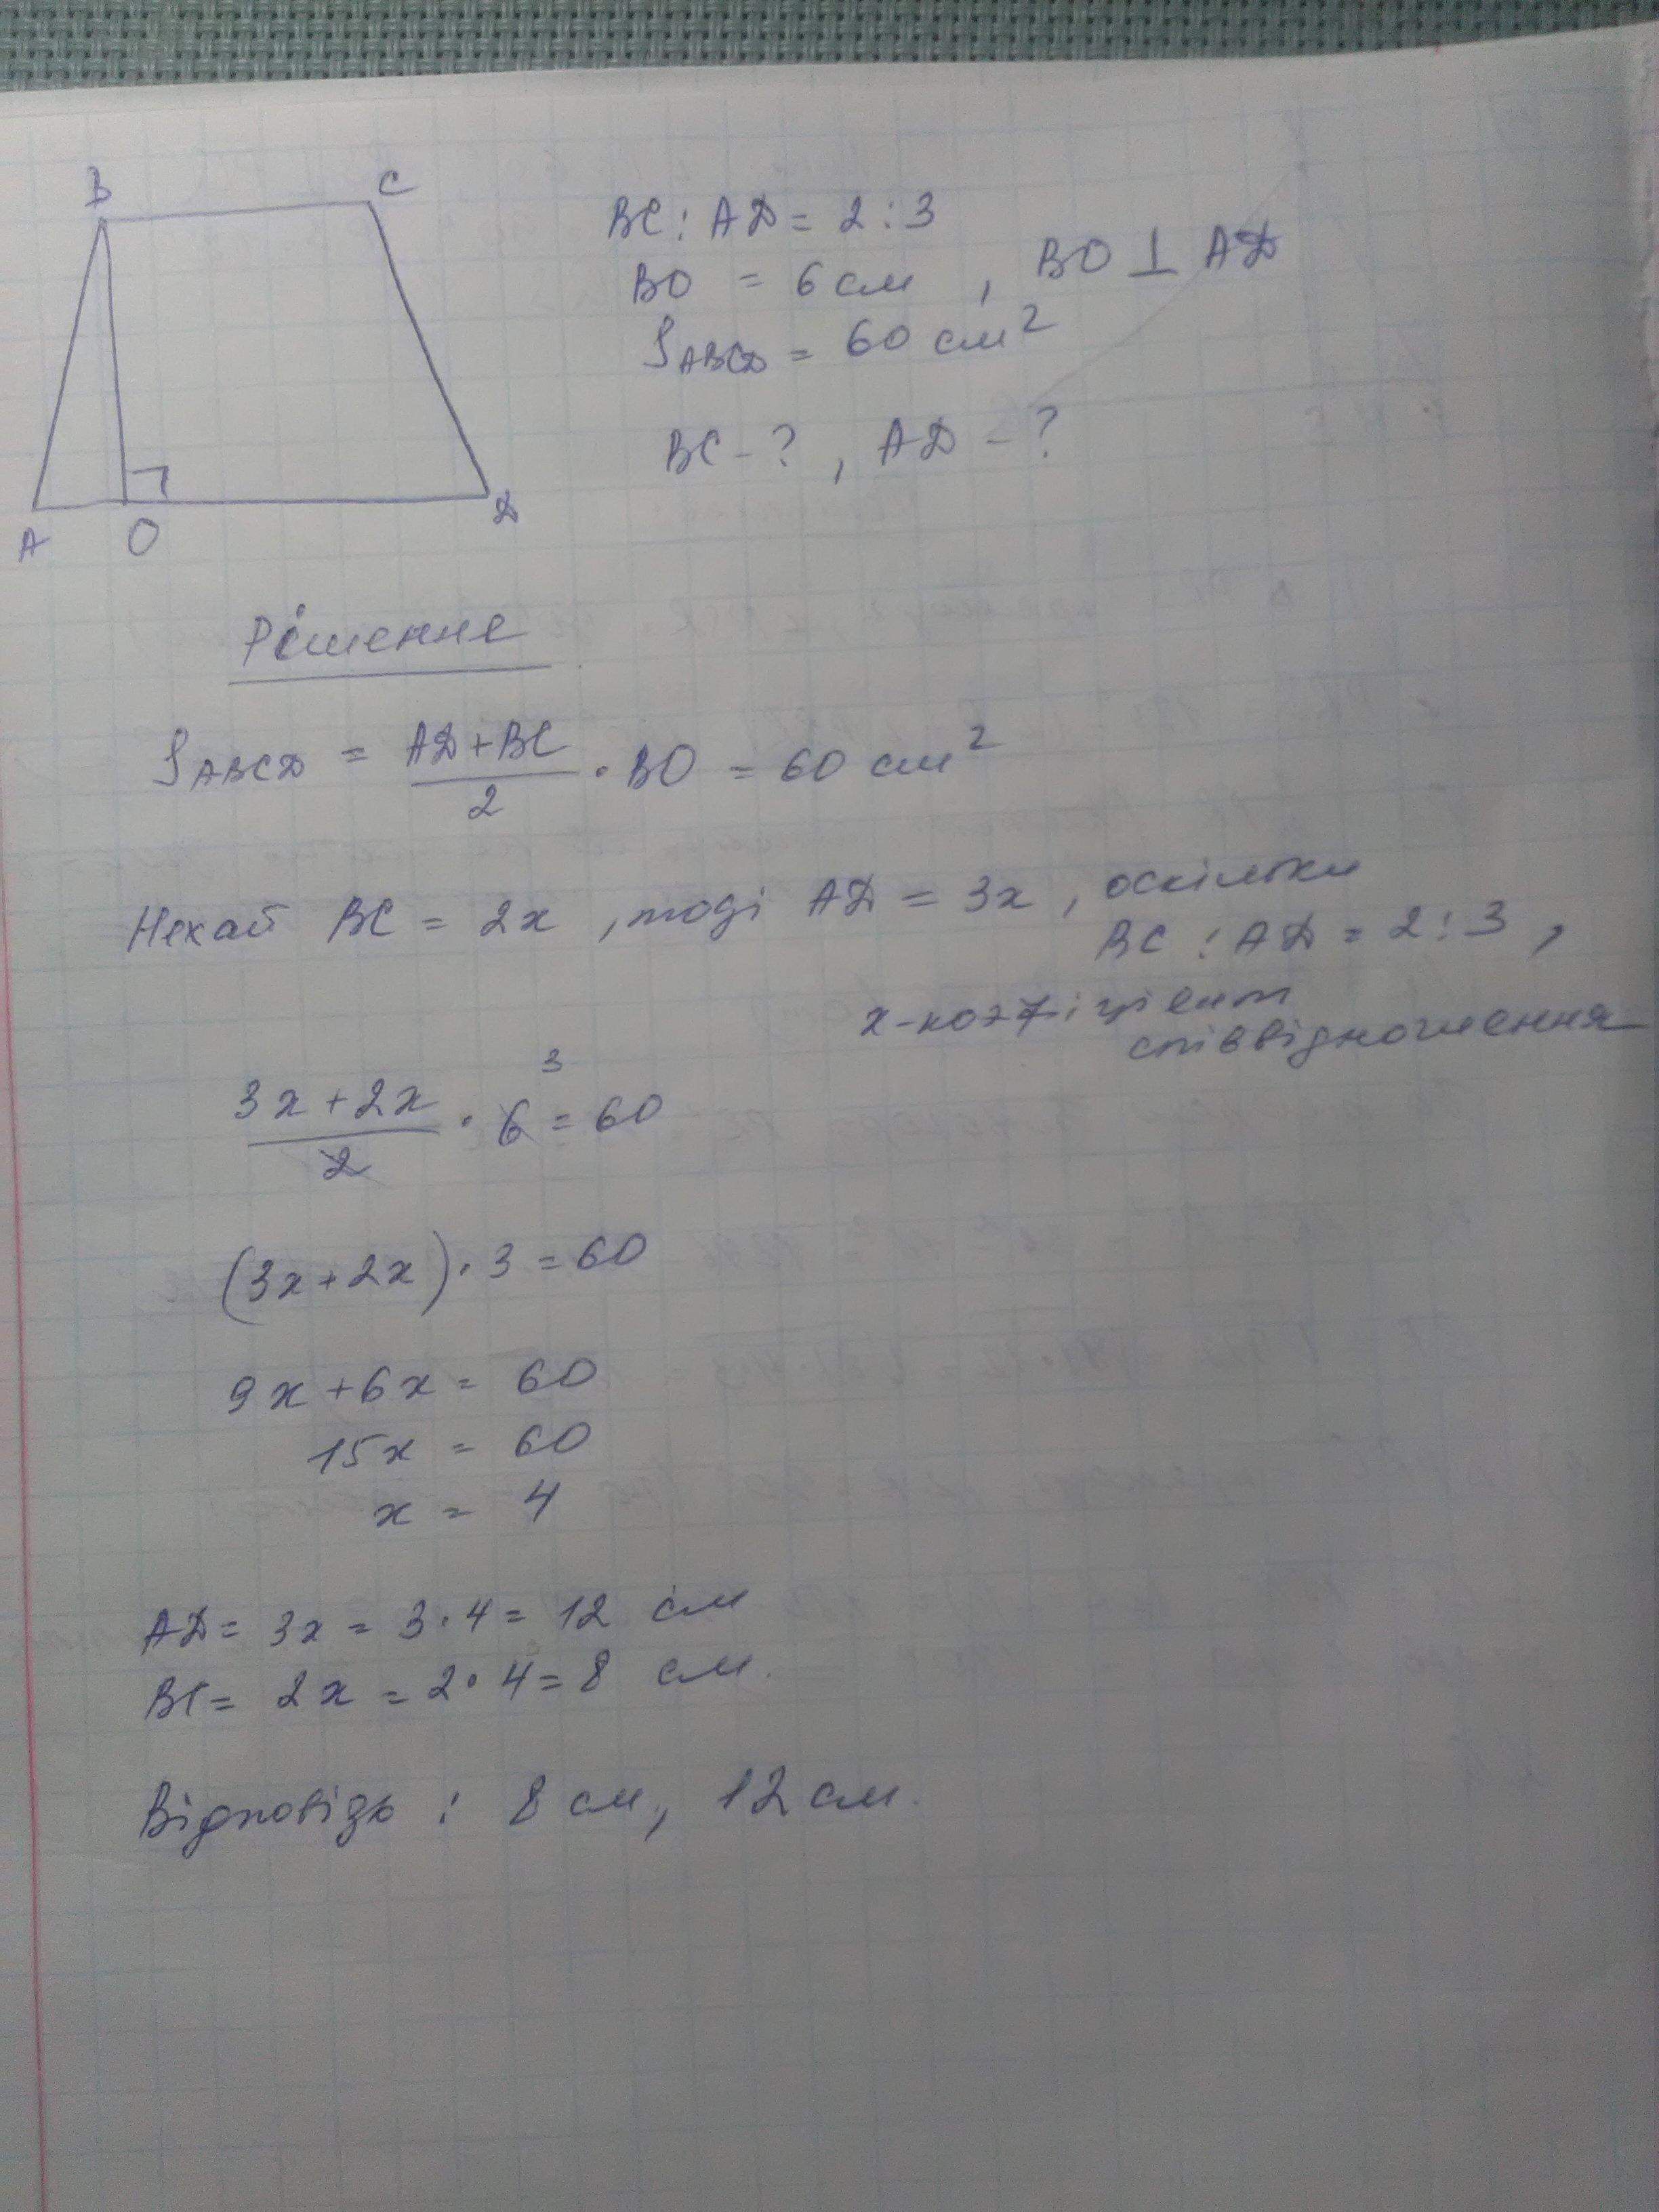 B
C
A
O
D
BC : AD = 2 : 3
BO = 6 см , BO ⊥ AD
S ABCD = 60 см²
BC - ? , AD - ?
Рішение
S ABCD = (AD + BC)/2 · BO = 60 см²
Нехай BC = 2x , тоді AD = 3x , оскільки
BC : AD = 2 : 3 ,
x - коэфіцієнт
співвідношення
3
(3x + 2x)/2 · 6 = 60
(3x + 2x) · 3 = 60
9x + 6x = 60
15x = 60
x = 4
AD = 3x = 3 · 4 = 12 см
BC = 2x = 2 · 4 = 8 см.
Відповідь : 8 см, 12 см.